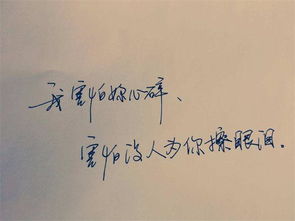 我害怕你心碎、
害怕没人为你擦眼泪.